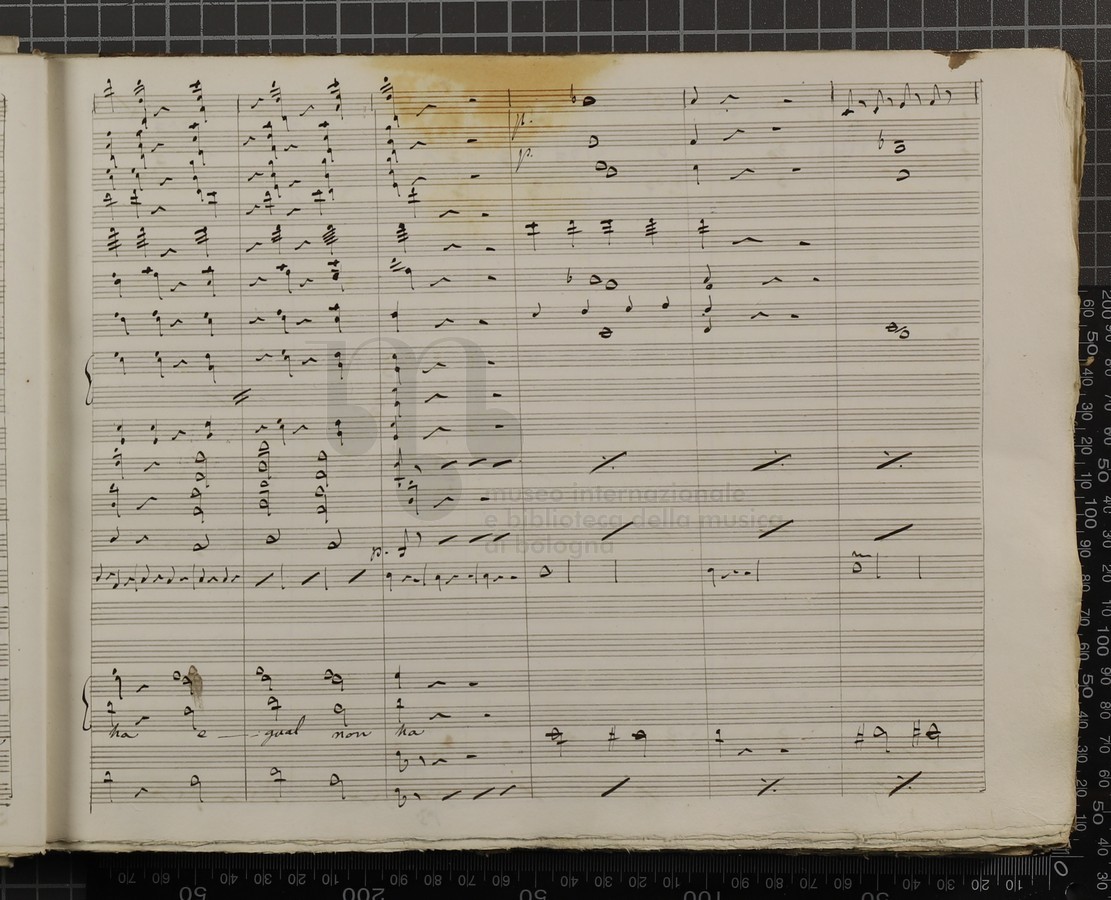 p.
p.
museo internazionale
e biblioteca della musica
di bologna
p.
ha e — gual non ha